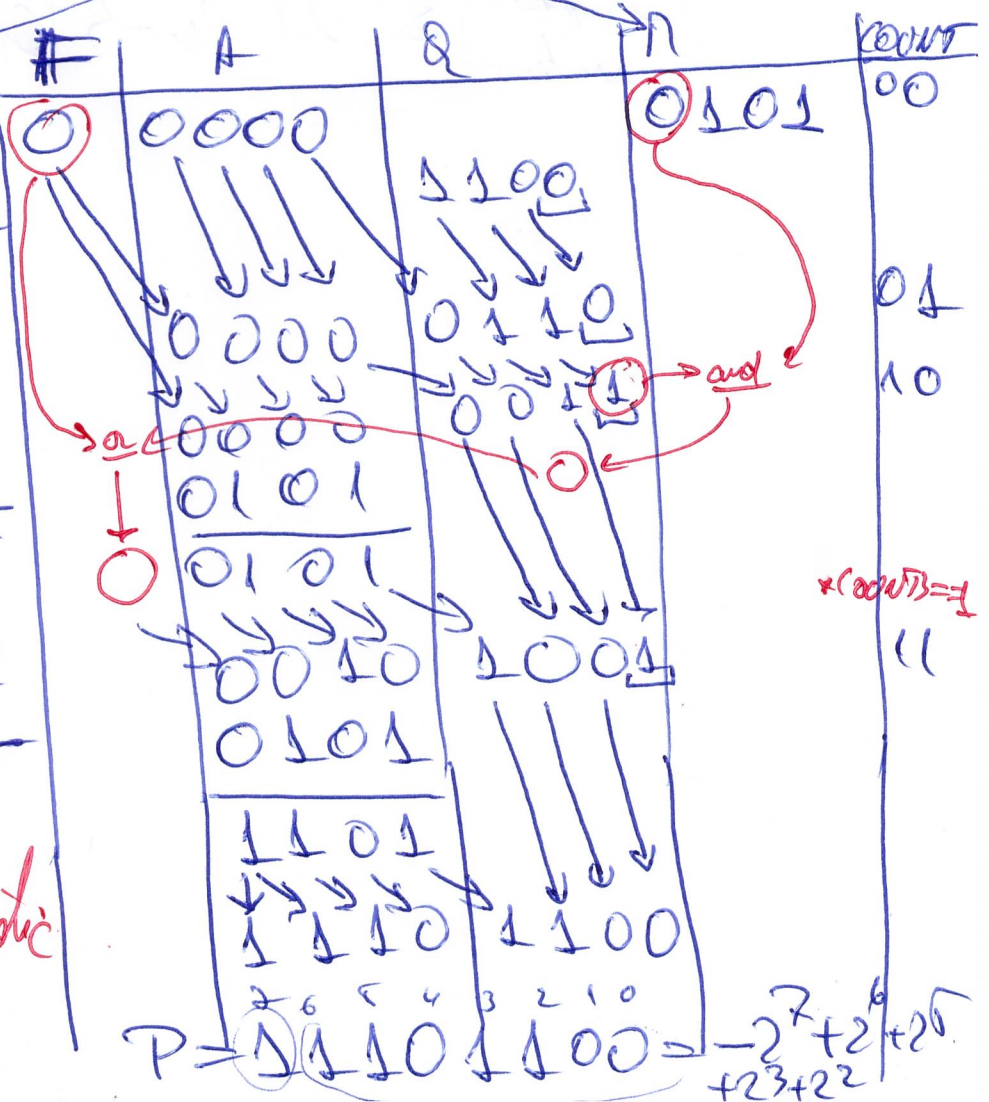 F A Q M COUNT
0 0000 0101 00
1100
0000 0110 01
0000 0011 and 10
or
0101 0
0101
0 *COUNT3=1
0010 1001 11
0101
1101
1110 1100
7 6 5 4 3 2 1 0
P=11101100=-2^7+2^6+2^5
+2^3+2^2